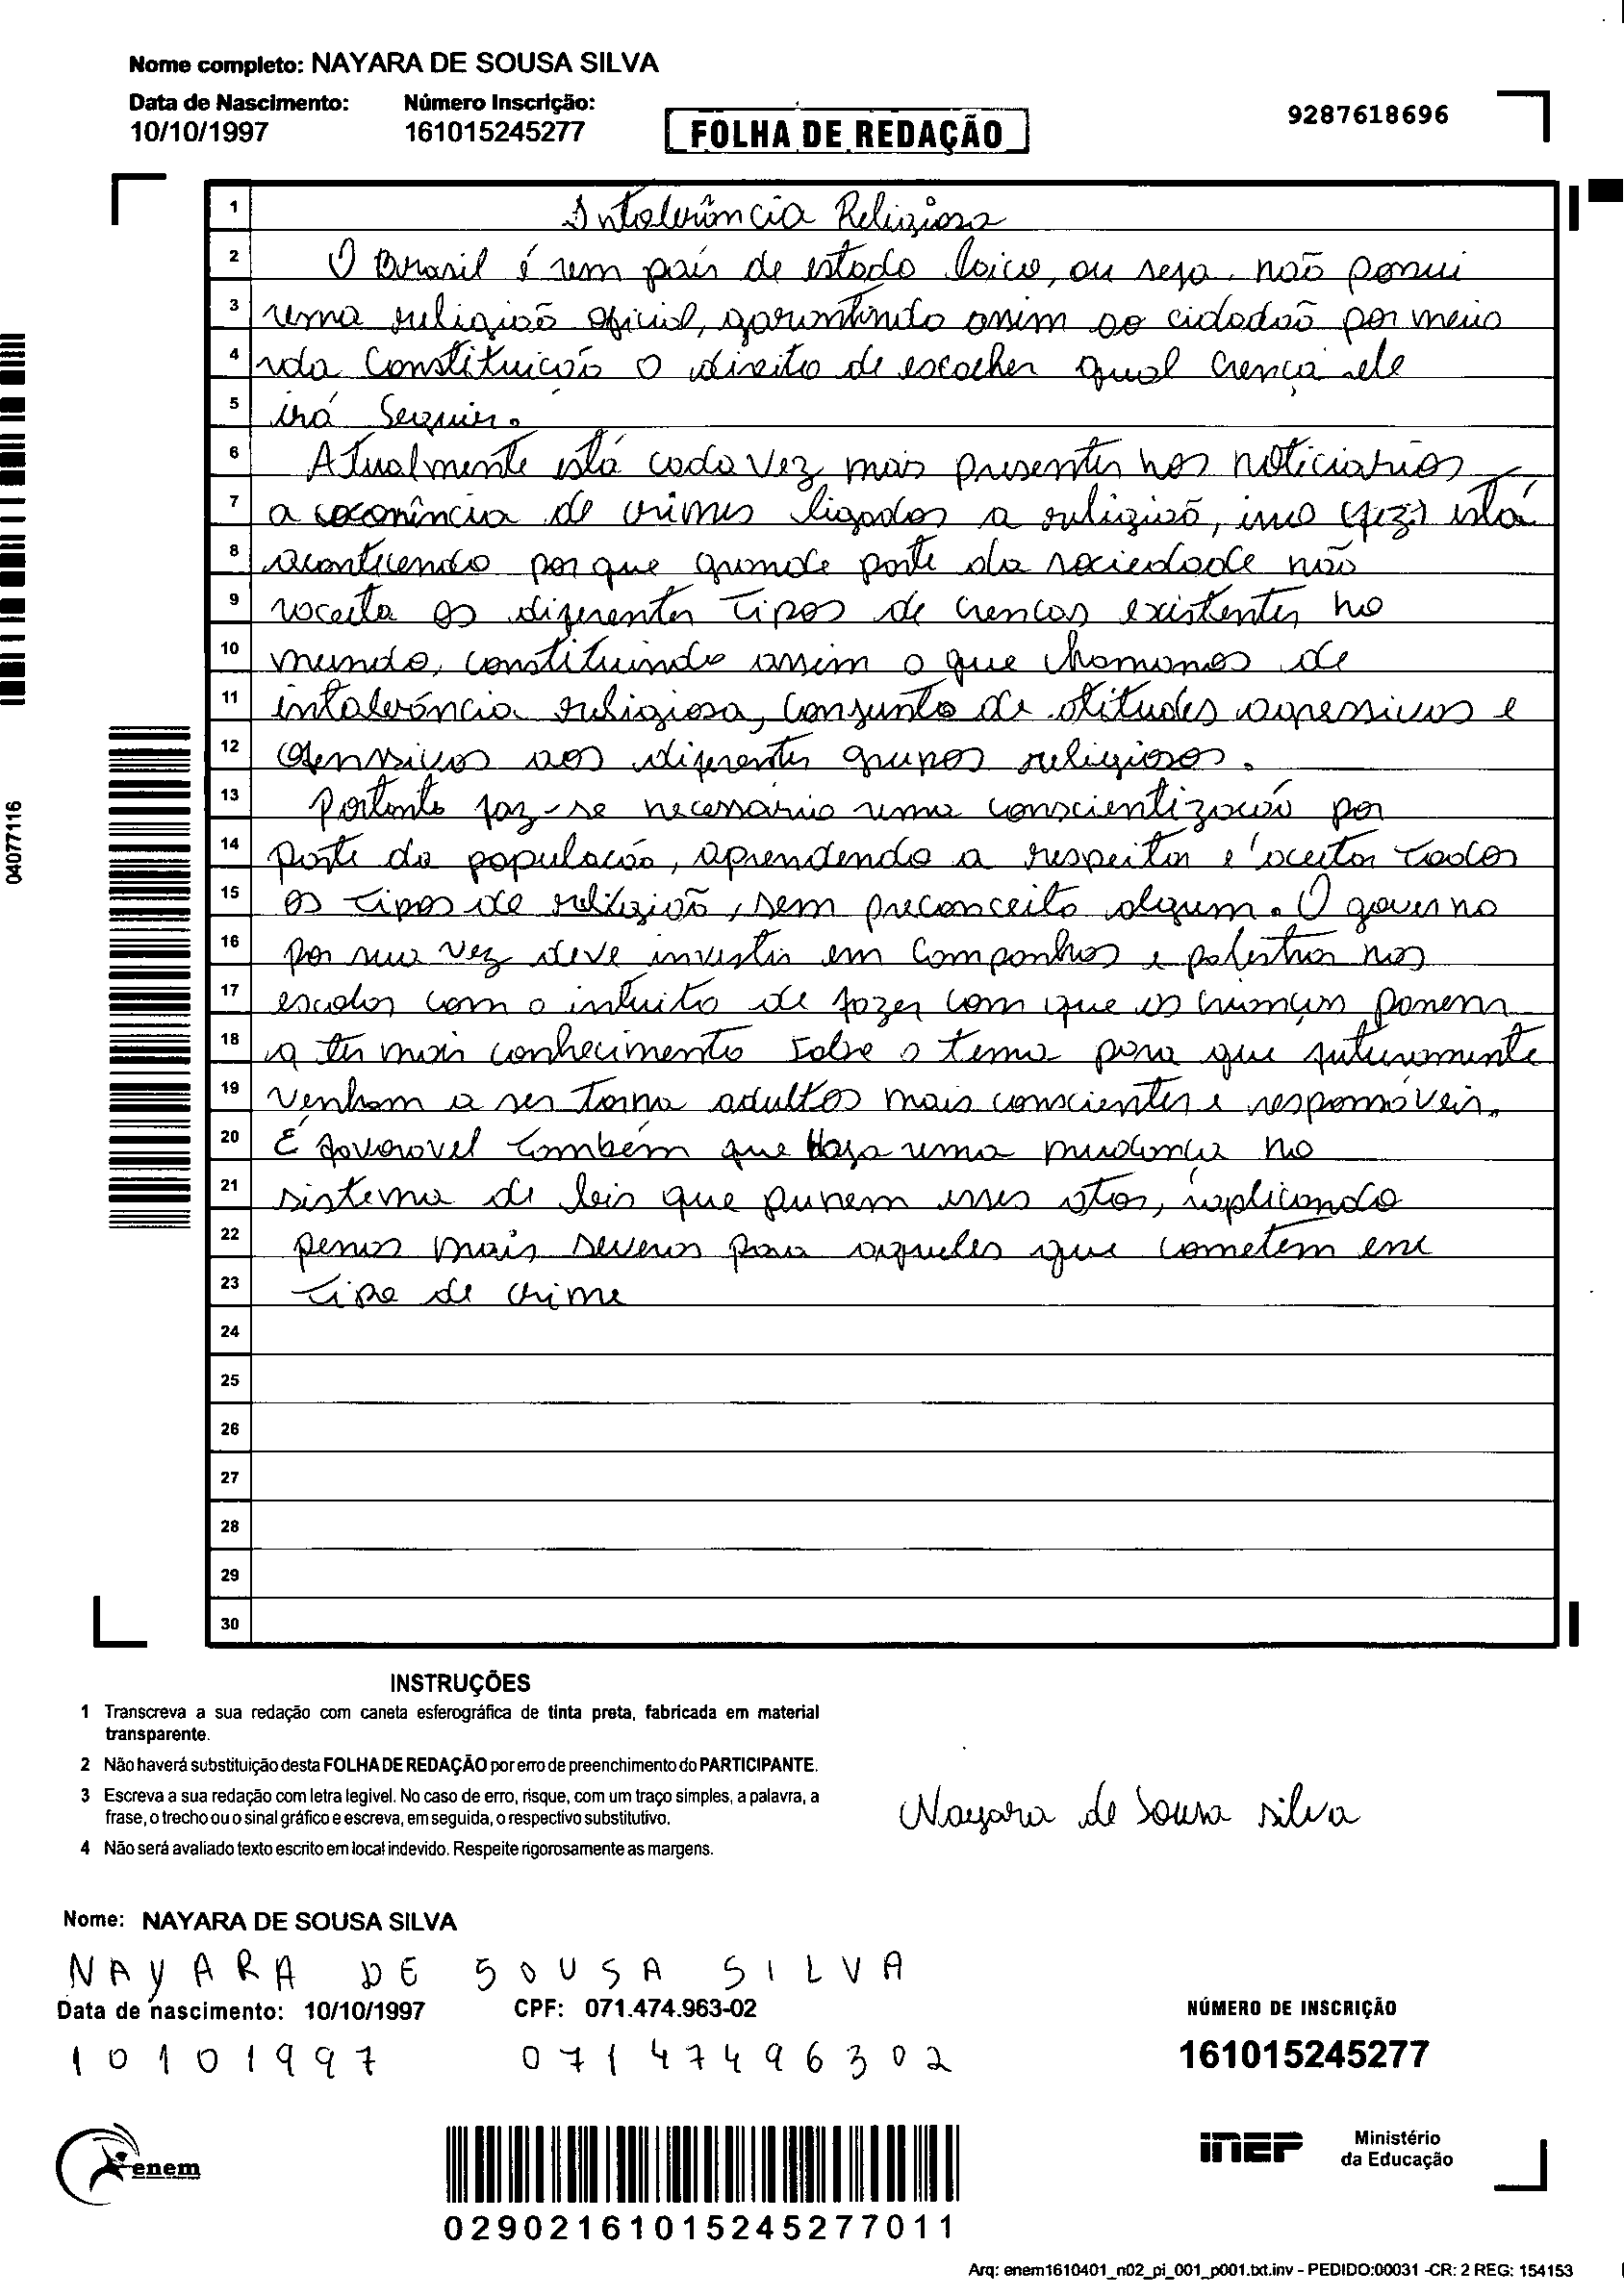 Nome completo: NAYARA DE SOUSA SILVA
Data de Nascimento: Número Inscrição:
10/10/1997 161015245277
FOLHA DE REDAÇÃO
9287618696
1 Intolerância Religiosa
2 O Brasil é um país de estado laico, ou seja, não possui
3 uma religião oficial, garantindo assim ao cidadão por meio
4 da Constituição o direito de escolher qual crença ele
5 irá seguir.
6 Atualmente está cada vez mais presentes nos noticiários
7 a ocorrência de crimes ligados a religião, isso (fez) está
8 acontecendo por que grande parte da sociedade não
9 aceita os diferentes tipos de crenças existentes no
10 mundo, constituindo assim o que chamamos de
11 intolerância religiosa, conjunto de atitudes agressivas e
12 ofensivas aos diferentes grupos religiosos.
13 Portanto faz-se necessário uma conscientização por
14 parte da população, aprendendo a respeitar e aceitar todos
15 os tipos de religião, sem preconceito algum. O governo
16 por sua vez deve investir em campanhas e palestras nas
17 escolas com o intuito de fazer com que as crianças passem
18 a ter mais conhecimento sobre o tema para que futuramente
19 venham a ser torna adultos mais conscientes e responsáveis.
20 É favoravel também que haja uma mudança no
21 sistema de leis que punem esses atos, aplicando
22 penas mais severas para aqueles que cometem esse
23 tipo de crime
24
25
26
27
28
29
30
04077116
INSTRUÇÕES
1 Transcreva a sua redação com caneta esferográfica de tinta preta, fabricada em material
transparente.
2 Não haverá substituição desta FOLHA DE REDAÇÃO por erro de preenchimento do PARTICIPANTE.
3 Escreva a sua redação com letra legível. No caso de erro, risque, com um traço simples, a palavra, a
frase, o trecho ou o sinal gráfico e escreva, em seguida, o respectivo substitutivo.
4 Não será avaliado texto escrito em local indevido. Respeite rigorosamente as margens.
Nayara de Sousa silva
Nome: NAYARA DE SOUSA SILVA
NAYARA DE SOUSA SILVA
Data de nascimento: 10/10/1997 CPF: 071.474.963-02
10101997 07147496302
NÚMERO DE INSCRIÇÃO
161015245277
enem
029021610152452770​11
INEP
Ministério
da Educação
Arq: enem1610401_n02_pi_001_p001.txt.inv - PEDIDO:00031 -CR: 2 REG: 154153